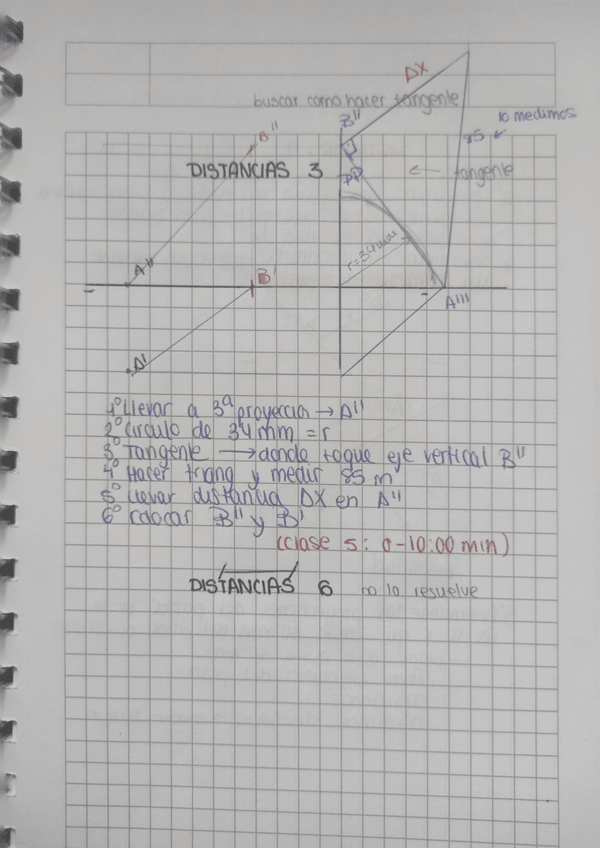 ΔX
buscar como hacer tangente
B''
lo medimos
B''
85
DISTANCIAS 3
PP
← tangente
A''
r=34mm
B'
A'''
A'
1º Llevar a 3ª proyeccia → A''
2º Circulo de 34 mm = r
3º Tangente → donde toque eje vertical B''
4º Hacer triang y medir 85 m
5º Llevar distancia ΔX en A''
6º colocar B'' y B'
(clase 5: 0-10:00 min)
DISTANCIAS 6 no lo resuelve